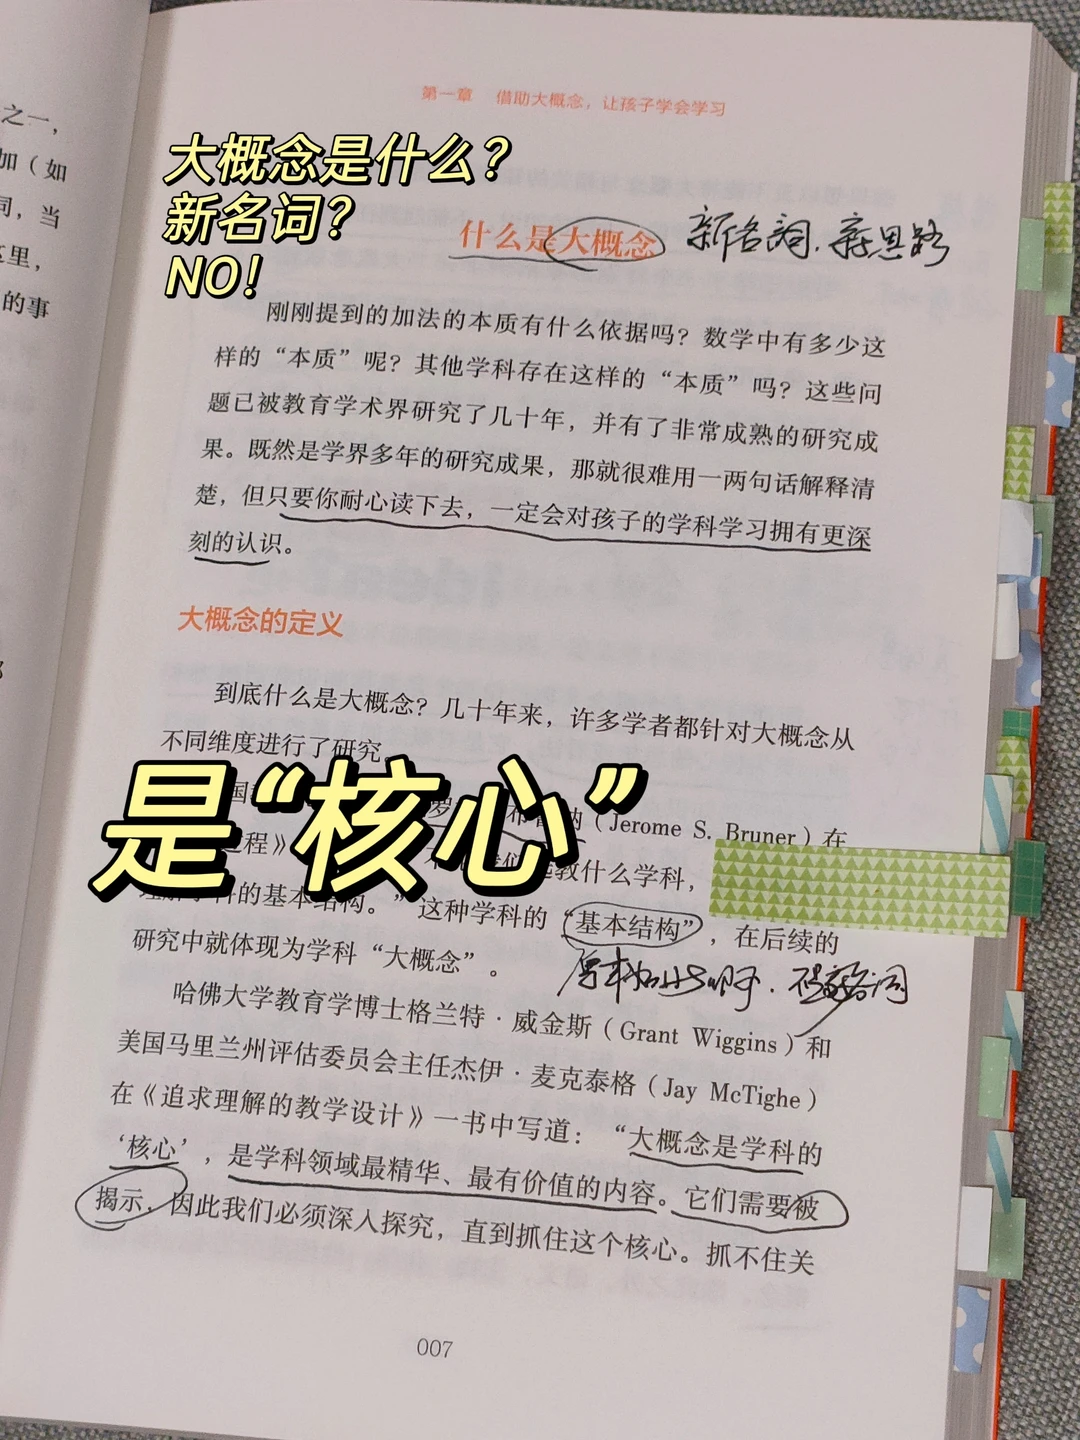 之一，
加（如
同，当
这里，
的事
第一章 借助大概念，让孩子学会学习
大概念是什么？
新名词？
NO！
什么是大概念 新名词、新思路
刚刚提到的加法的本质有什么依据吗？数学中有多少这
样的“本质”呢？其他学科存在这样的“本质”吗？这些问
题已被教育学术界研究了几十年，并有了非常成熟的研究成
果。既然是学界多年的研究成果，那就很难用一两句话解释清
楚，但只要你耐心读下去，一定会对孩子的学科学习拥有更深
刻的认识。
大概念的定义
到底什么是大概念？几十年来，许多学者都针对大概念从
不同维度进行了研究。
是“核心”
（Jerome S. Bruner）在
过程》 教什么学科，
的基本结构。”这种学科的“基本结构”，在后续的
研究中就体现为学科“大概念”。
哈佛大学教育学博士格兰特·威金斯（Grant Wiggins）和
美国马里兰州评估委员会主任杰伊·麦克泰格（Jay McTighe）
在《追求理解的教学设计》一书中写道：“大概念是学科的
‘核心’，是学科领域最精华、最有价值的内容。它们需要被
揭示，因此我们必须深入探究，直到抓住这个核心。抓不住关
007